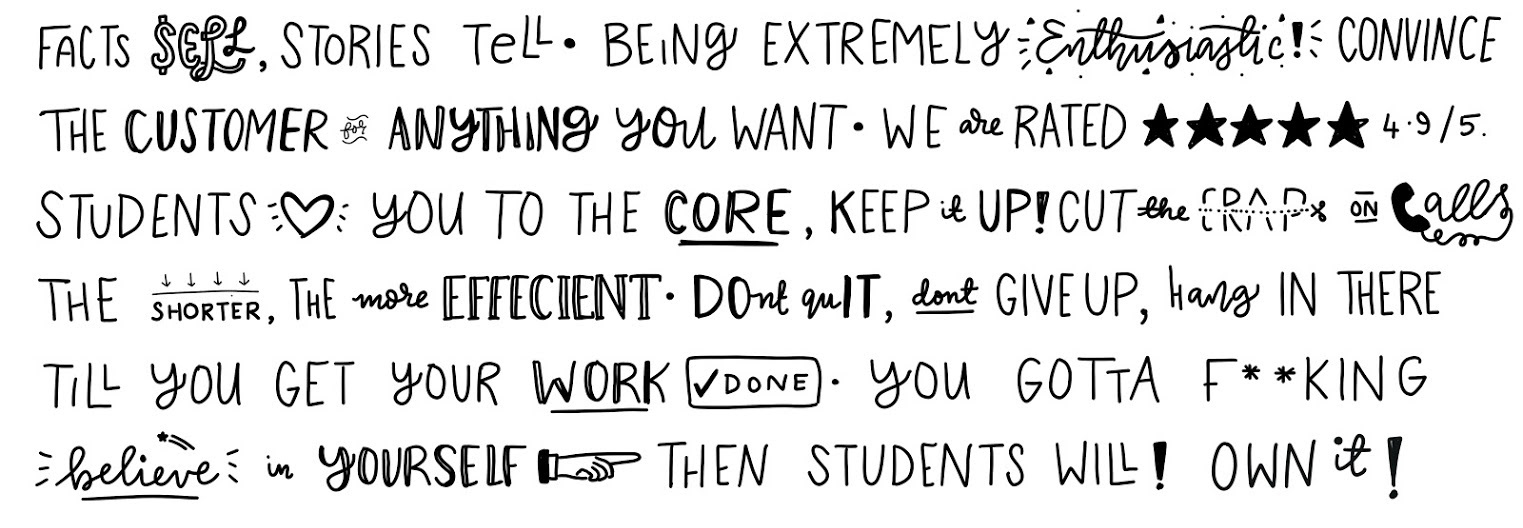 FACTS $ELL, STORIES TeLL. BEiNg EXTREMELY Enthusiastic! CONVINCE
THE CUSTOMER for ANYTHING YOU WANT. WE are RATED ★★★★★ 4.9/5.
STUDENTS ♡ YOU TO THE CORE, KEEP it UP! CUT the CRAP ON Calls
THE ↓↓↓↓ SHORTER, THE more EFFECIENT. DOnt quIT, dont GIVE UP, hang IN THERE
TiLL YOU GET YOUR WORK ✓DONE. YOU GOTTA F**KING
believe in YOURSELF THEN STUDENTS WILL! OWN it!